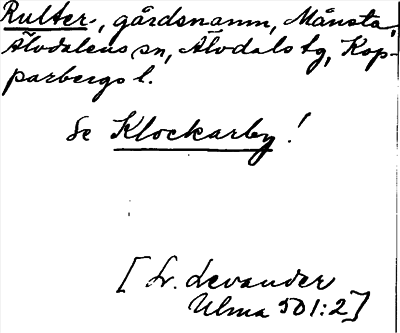 Rulter-, gårdsnamn, Månsta,
Älvdalens sn, Älvdals tg, Kop-
parbergs l.
Se Klockarby!
[Lr. Levander
Ulma 501:2]